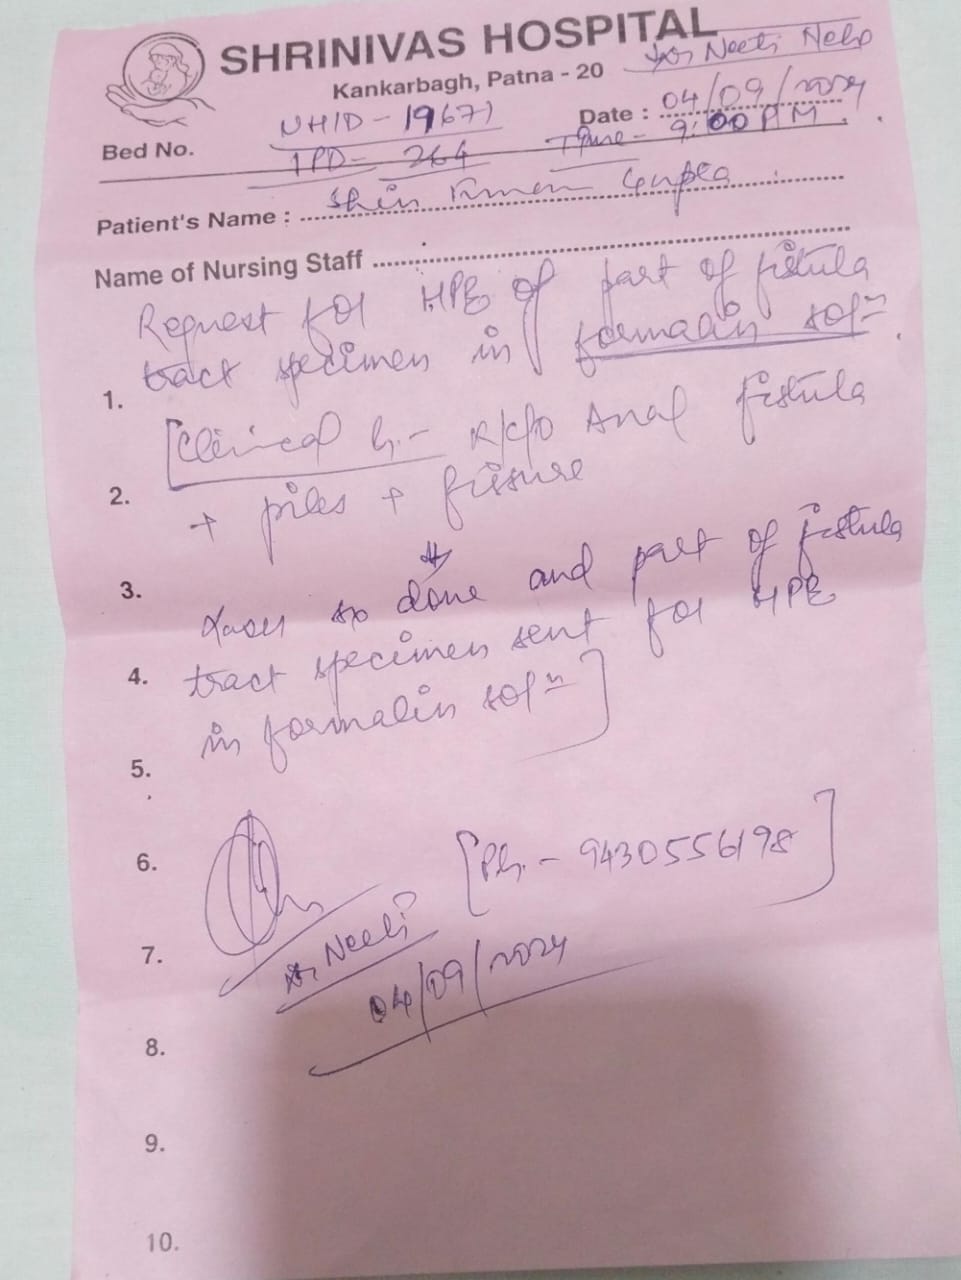 SHRINIVAS HOSPITAL
Dr Neeti Neha
Kankarbagh, Patna - 20
Date : 04/09/2024
UHID - 19671
Time - 9:00 PM.
Bed No.
IPD - 264
Patient's Name : Shiv Kumar Gupta
Name of Nursing Staff
Request for HPE of part of fistula
tract specimen in formalin solⁿ.
1.
[Clinical h:- K/c/o Anal fistula
2.
+ piles + fissure
3.
Laser done and part of fistula
4. tract specimen sent for HPE
in formalin solⁿ]
5.
6.
[Ph. - 9430556198]
7.
Dr Neeti
04/09/2024
8.
9.
10.